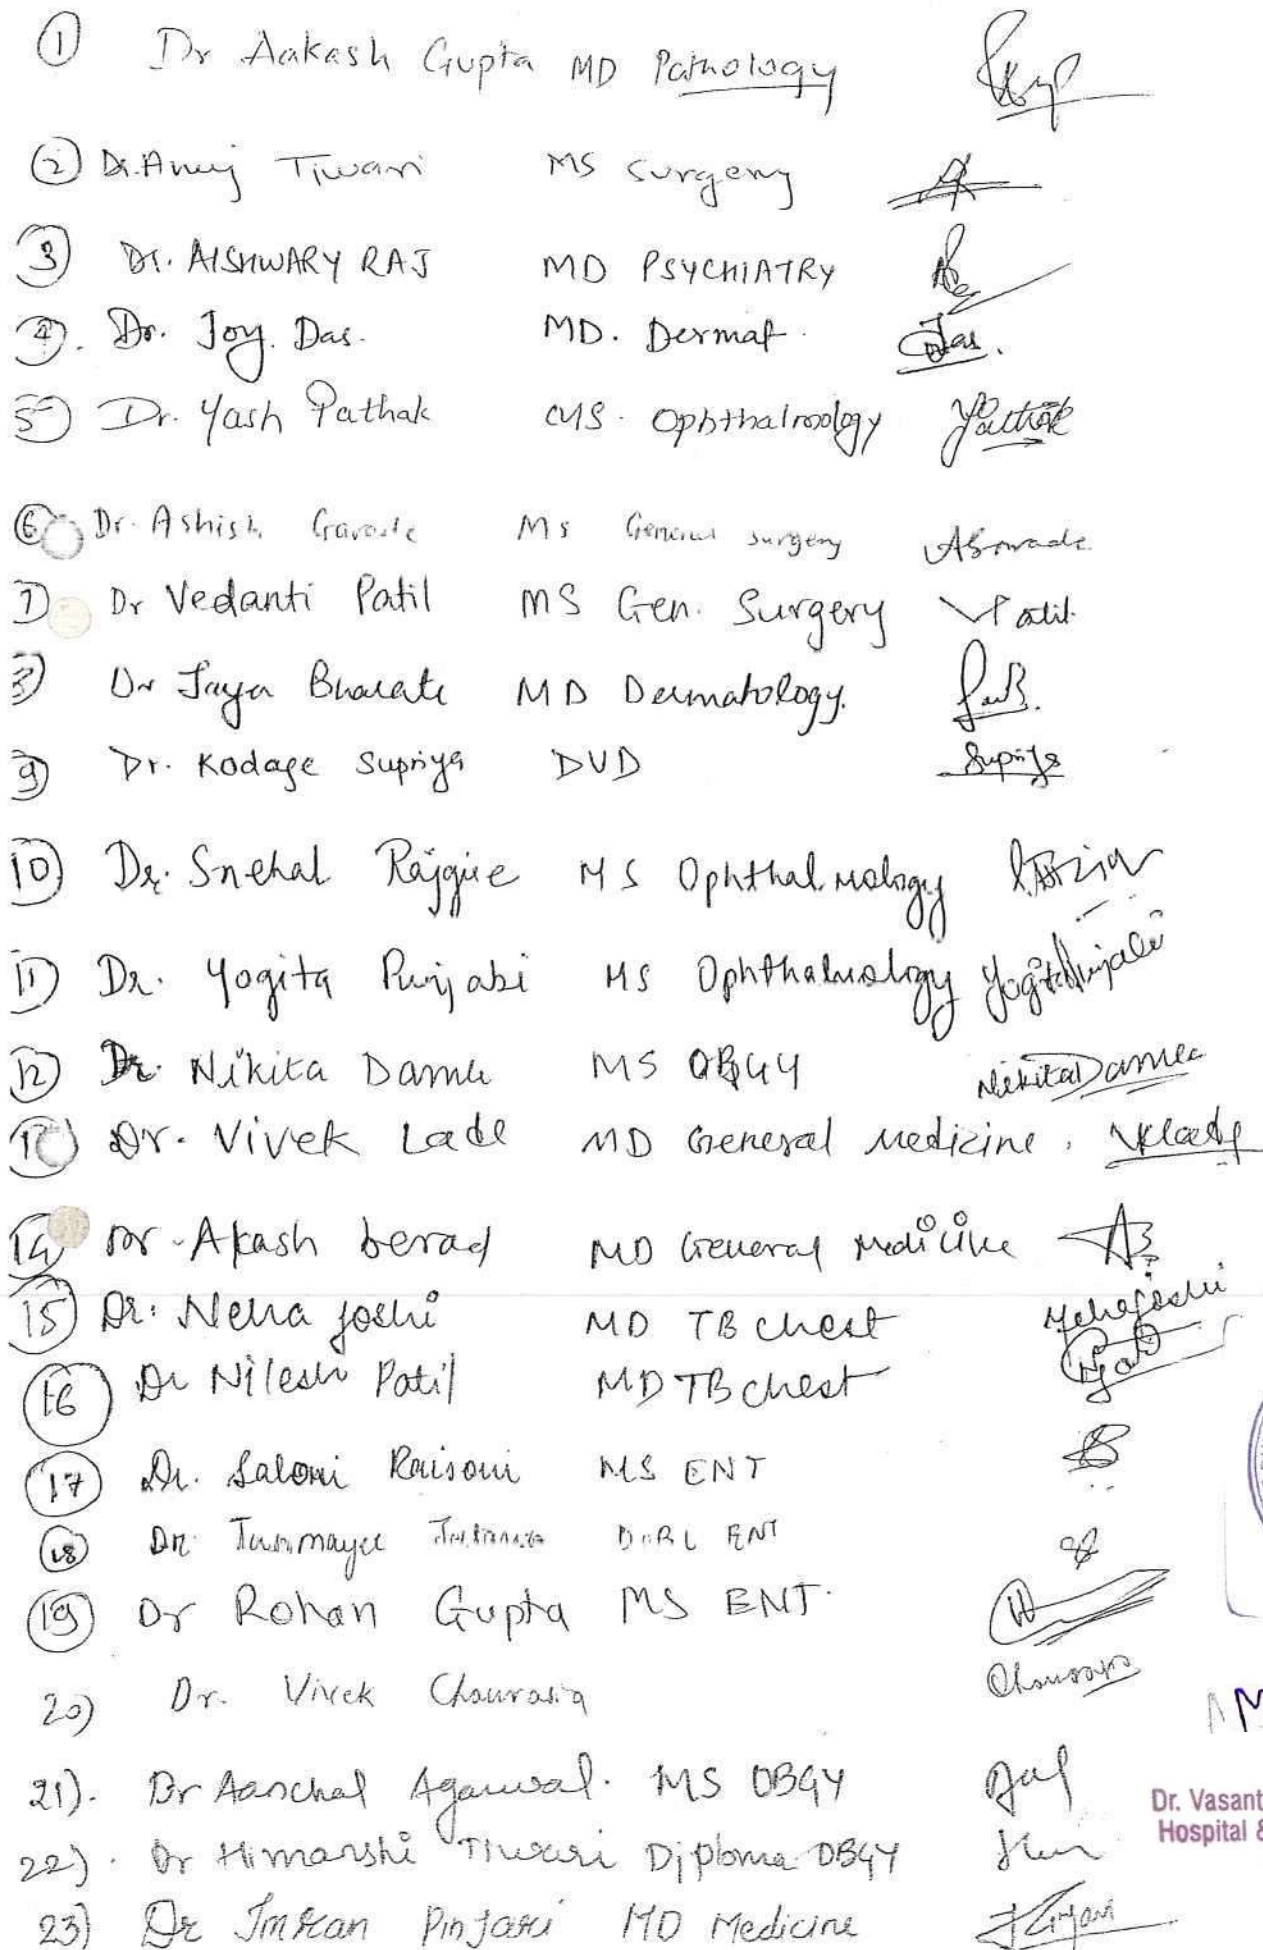 1 Dr Aakash Gupta MD Pathology
2 Dr. Anuj Tiwari MS Surgery
3 Dr. AISHWARY RAJ MD PSYCHIATRY
4. Dr. Joy. Das. MD. Dermat. Das.
5 Dr. Yash Pathak MS. Ophthalmology Pathak
6 Dr. Ashish MS General surgery
7 Dr Vedanti Patil MS Gen. Surgery VPatil
8 Dr Jaya Bharate MD Dermatology.
9 Dr. Kodage Supriya DVD Supriya
10 Dr. Snehal Rajgire MS Ophthalmology
11 Dr. Yogita Punjabi MS Ophthalmology Yogita Punjabi
12 Dr. Nikita Damle MS OBGY Nikita Damle
Dr. Vivek Lade MD General Medicine. VLade
14 Dr. Akash berad MD General Medicine
15 Dr. Neha Joshi MD TB chest Neha Joshi
16 Dr Nilesh Patil MD TB chest
17 Dr. Saloni Raisoni MS ENT
18 Dr. Tanmayee DORL ENT
19 Dr Rohan Gupta MS ENT.
20) Dr. Vivek Chourasia
21). Dr Aanchal Agarwal. MS OBGY
Dr. Vasant
Hospital &
22). Dr Himanshi Tiwari Diploma OBGY
23) Dr Imran Pinjari MD Medicine